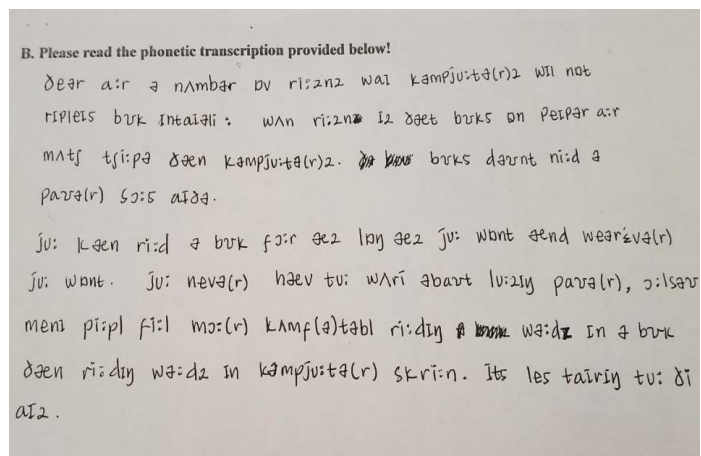 B. Please read the phonetic transcription provided below!
ðeər a:r ə nʌmbər ɒv ri:znz waɪ kəmpju:tə(r)z wɪl nɒt
rɪpleɪs bʊk ɪntaɪəli: wʌn ri:zn ɪz ðæt bʊks ɒn peɪpər a:r
mʌtʃ tʃi:pə ðæn kəmpju:tə(r)z. bʊks dəʊnt ni:d ə
paʊə(r) sɔ:s aɪðə.
ju: kæn ri:d ə bʊk fɔ:r æz lɒŋ æz ju: wɒnt ænd weərevə(r)
ju: wɒnt. ju: nevə(r) hæv tu: wʌrɪ əbaʊt lu:zɪŋ paʊə(r), ɔ:lsəʊ
menɪ pi:pl fi:l mɔ:(r) kʌmf(ə)təbl ri:dɪŋ wɜ:dz ɪn ə bʊk
ðæn ri:dɪŋ wɜ:dz ɪn kəmpju:tə(r) skri:n. Its les taɪrɪŋ tu: ði
aɪz.